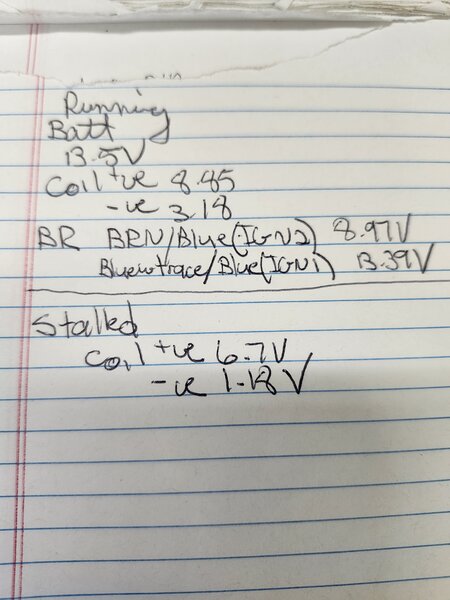 Running
Batt
13.5V
Coil +ve 8.85
-ve 3.18
BR BRN/Blue(IGN2) 8.97V
Bluewtrace/Blue(IGN1) 13.39V
Stalled
Coil +ve 6.7V
-ve 1.18 V